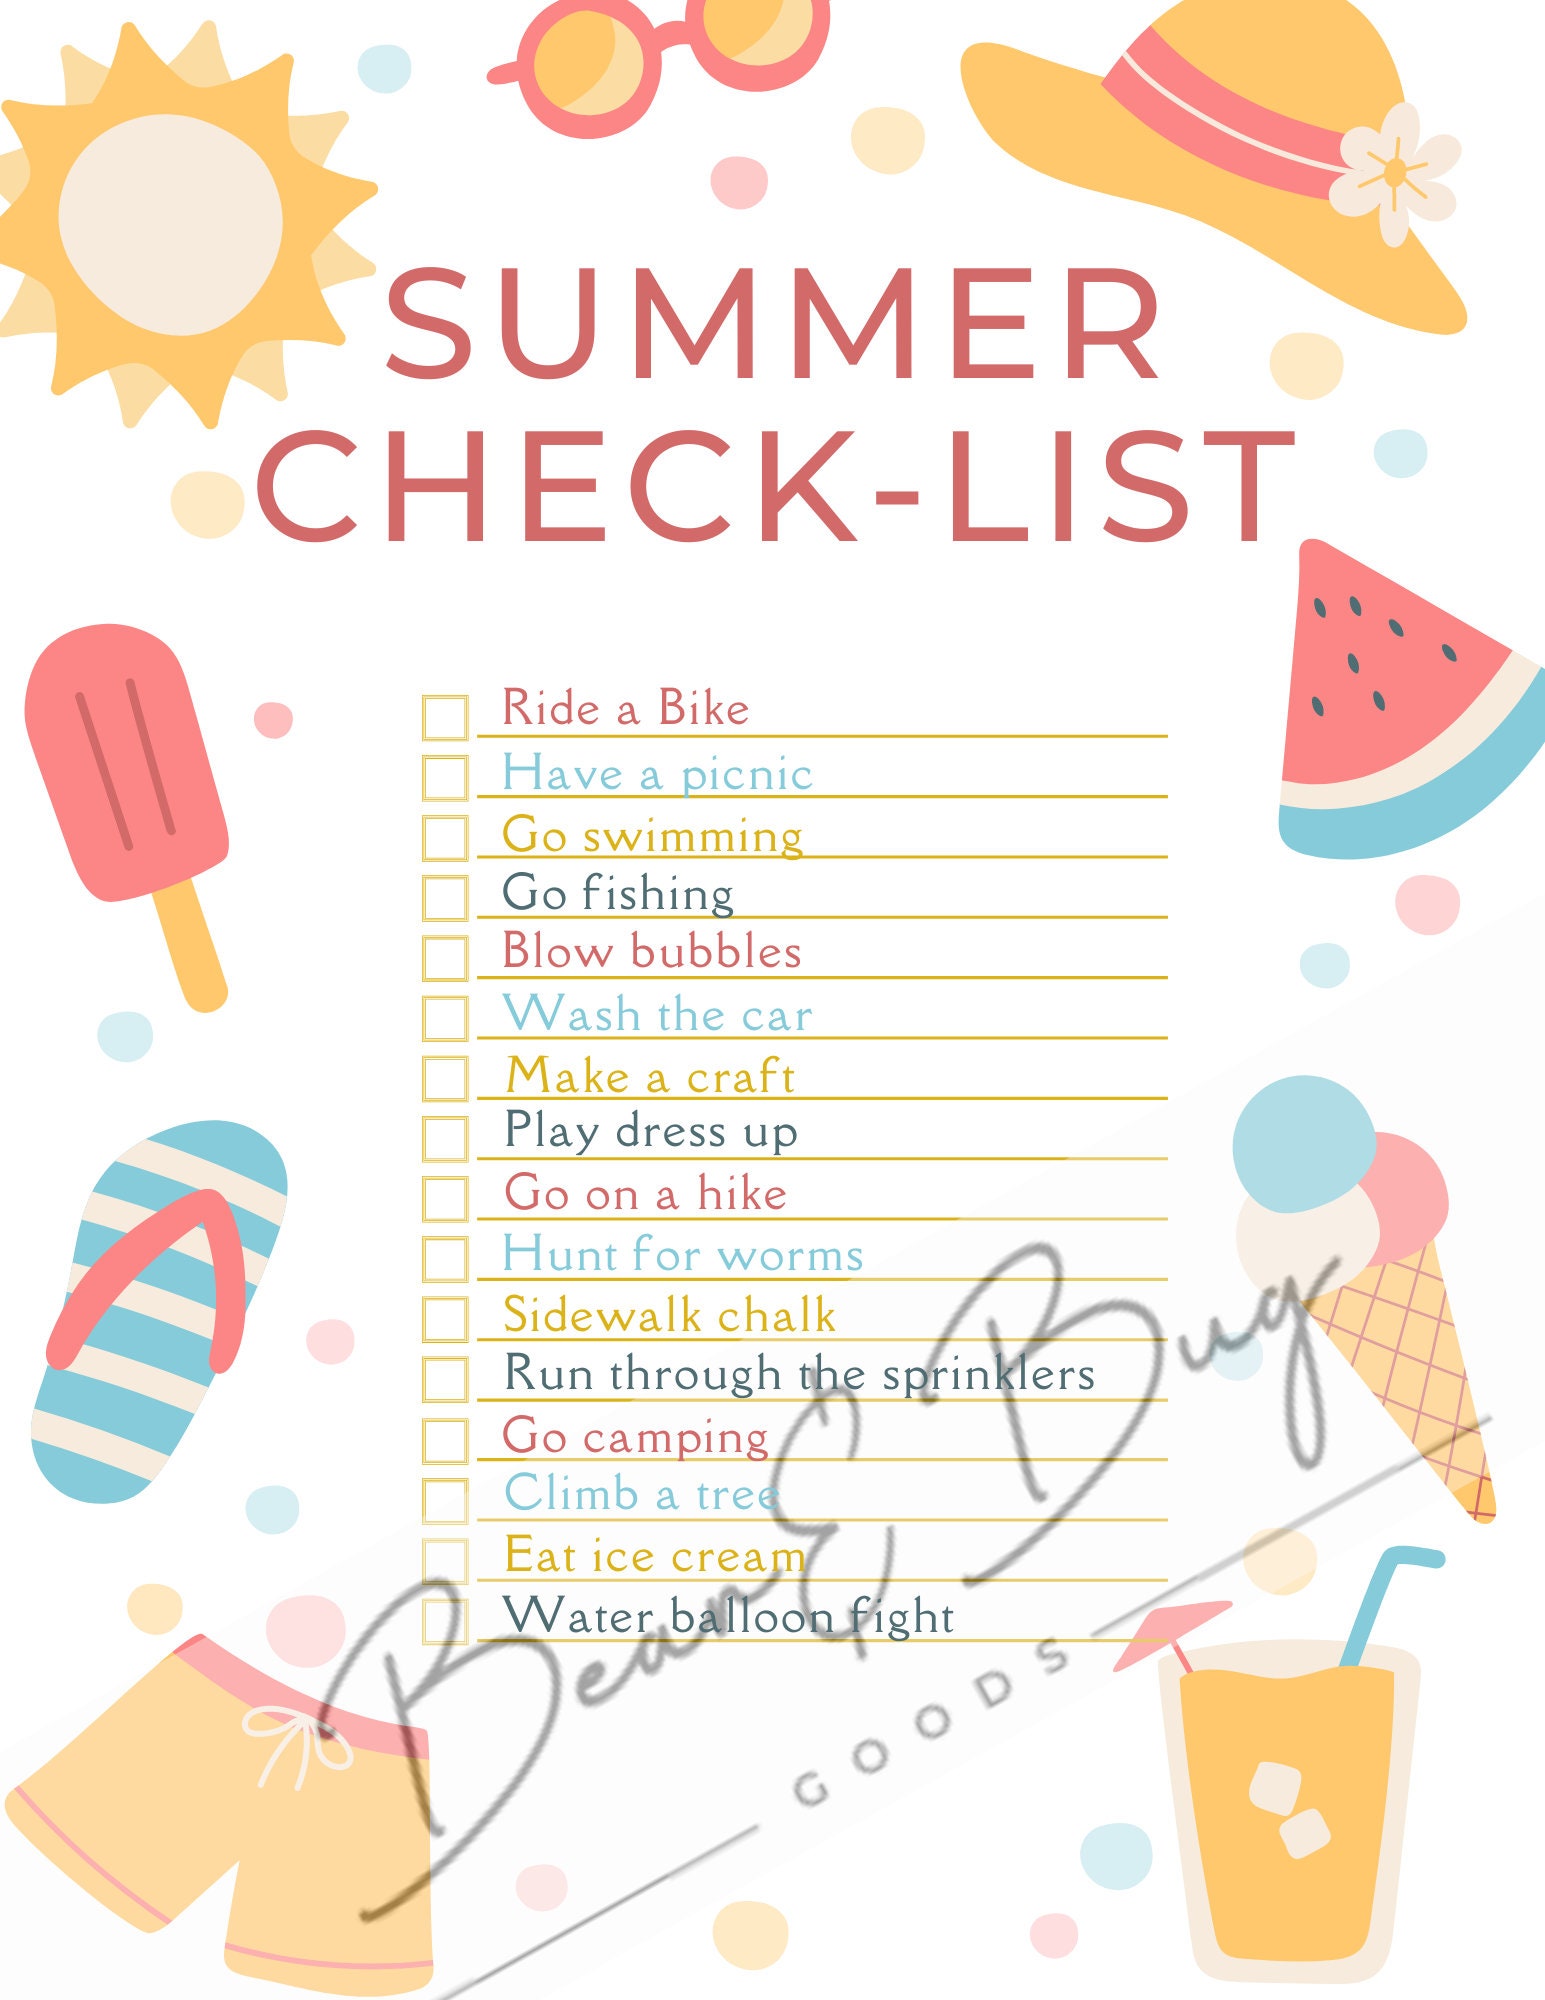 SUMMER
CHECK-LIST
Ride a Bike
Have a picnic
Go swimming
Go fishing
Blow bubbles
Wash the car
Make a craft
Play dress up
Go on a hike
Hunt for worms
Sidewalk chalk
Run through the sprinklers
Go camping
Climb a tree
Eat ice cream
Water balloon fight
Bean & Bug
GOODS